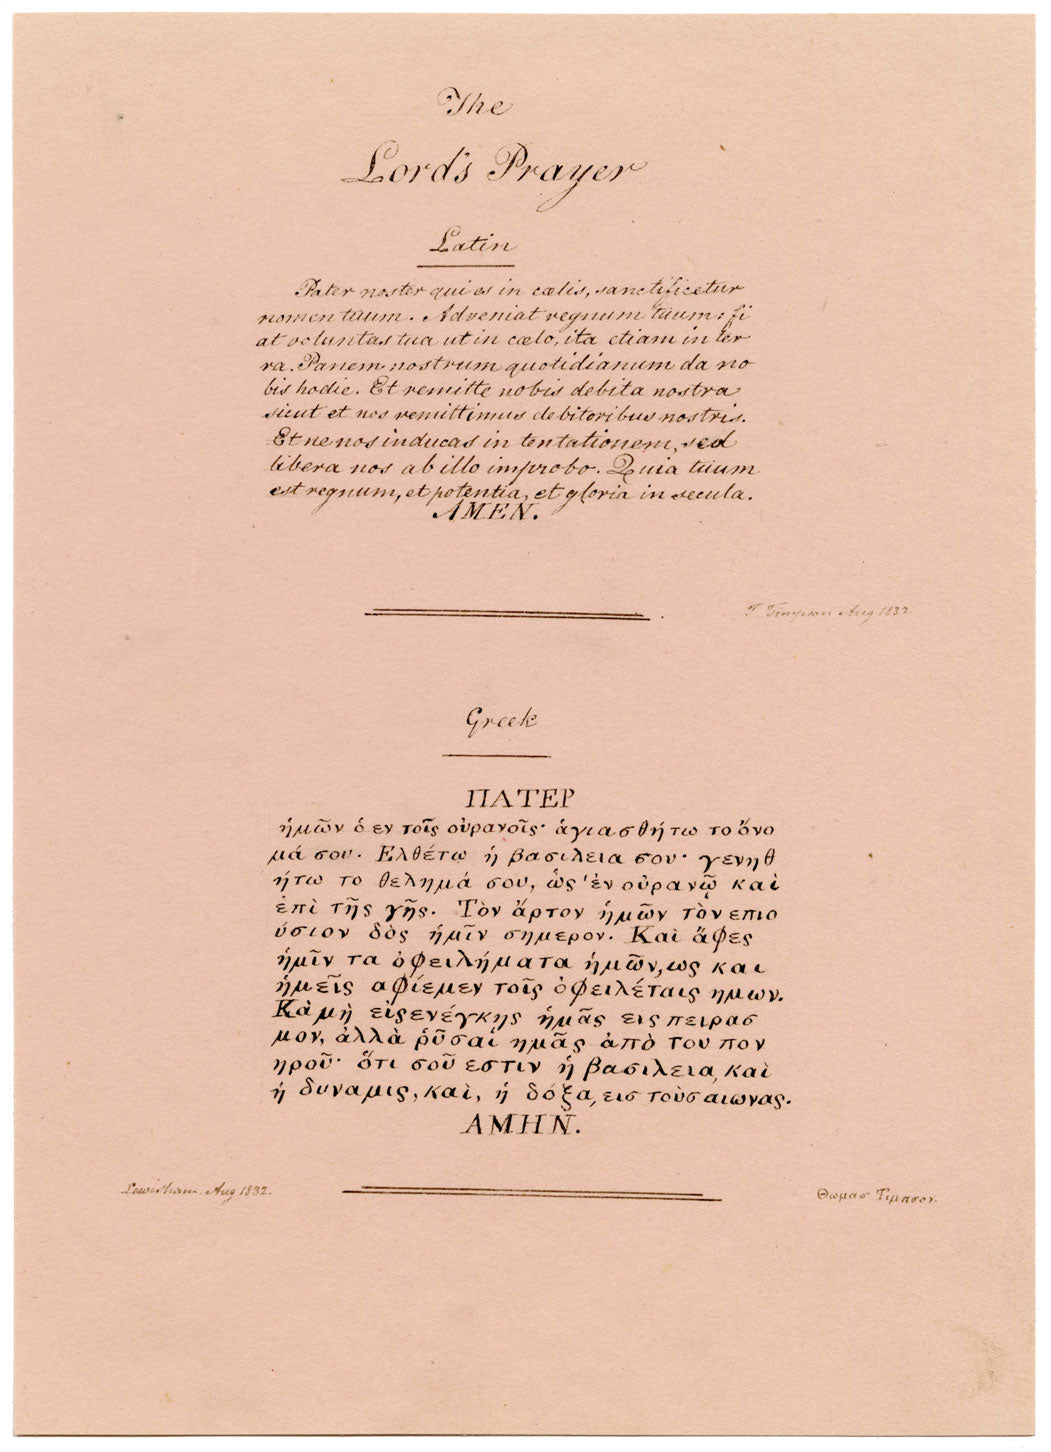 The
Lord's Prayer
Latin
Pater noster qui es in cœlis, sanctificetur
nomen tuum. Adveniat regnum tuum: fi
at voluntas tua ut in cœlo, ita etiam in ter
ra. Panem nostrum quotidianum da no
bis hodie. Et remitte nobis debita nostra
sicut et nos remittimus debitoribus nostris.
Et ne nos inducas in tentationem, sed
libera nos ab illo improbo. Quia tuum
est regnum, et potentia, et gloria in secula.
AMEN.
T Timpson Aug 1832
Greek
ΠΑΤΕΡ
ἡμῶν ὁ εν τοῖς οὐρανοῖς· ἁγιασθήτω το ὄνο
μά σου. Ελθέτω ἡ βασιλεια σου· γενηθ
ήτω το θελημά σου, ὡς ἐν οὐρανῷ καὶ
ἐπὶ τῆς γῆς. Τὸν ἄρτον ἡμῶν τὸν επιο
ύσιον δὸς ἡμῖν σημερον. Καὶ ἄφες
ἡμῖν τα ὀφειλήματα ἡμῶν, ως και
ἡμεῖς αφίεμεν τοῖς ὀφειλέταις ημων.
Κὰ μὴ εἰςενέγκης ἡμᾶς εις πειρασ
μον, ἀλλὰ ῥῦσαί ημᾶς ἀπὸ του πον
ηροῦ· ὅτι σοῦ εστιν ἡ βασιλεια, καὶ
ἡ δυναμις, καὶ, ἡ δόξα, εις τοὺσαιωνας.
ΑΜΗΝ.
Lewisham. Aug 1832.
Θωμασ Τιμπσον.